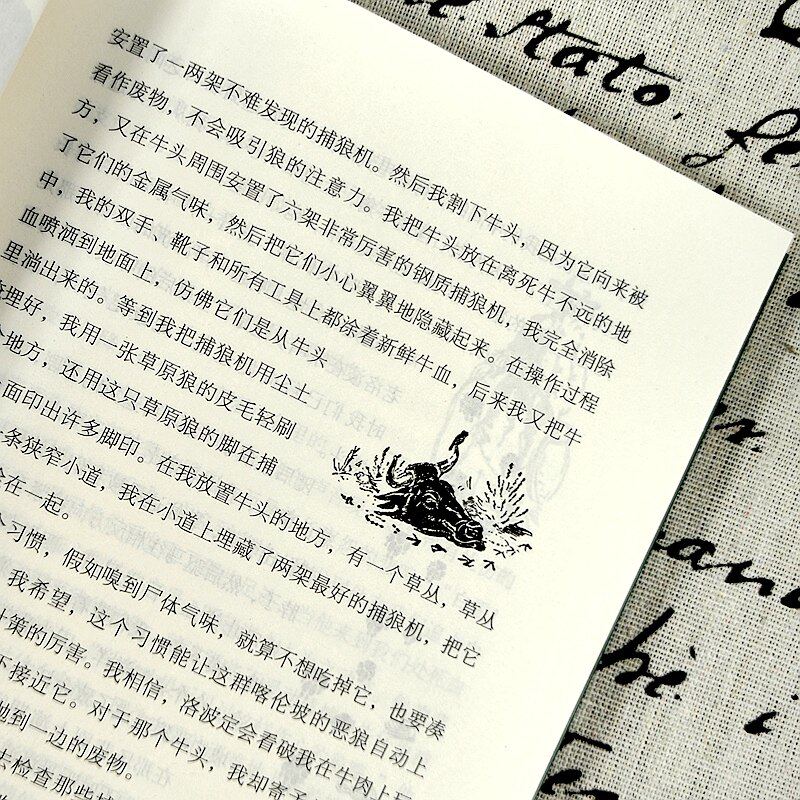 安置了一两架不难发现的捕狼机。然后我割下牛头，因为它向来被
看作废物，不会吸引狼的注意力。我把牛头放在离死牛不远的地
方，又在牛头周围安置了六架非常厉害的钢质捕狼机，我完全消除
了它们的金属气味，然后把它们小心翼翼地隐藏起来。在操作过程
中，我的双手、靴子和所有工具上都涂着新鲜牛血，后来我又把牛
血喷洒到地面上，仿佛它们是从牛头
里淌出来的。等到我把捕狼机用尘土
掩埋好，我用一张草原狼的皮毛轻刷
地方，还用这只草原狼的脚在捕
面印出许多脚印。在我放置牛头的地方，有一个草丛，草丛
条狭窄小道，我在小道上埋藏了两架最好的捕狼机，把它
在一起。
个习惯，假如嗅到尸体气味，就算不想吃掉它，也要凑
我希望，这个习惯能让这群喀伦坡的恶狼自动上
策的厉害。我相信，洛波定会看破我在牛肉上
下接近它。对于那个牛头，我却寄
到一边的废物。
去检查那些
stato.